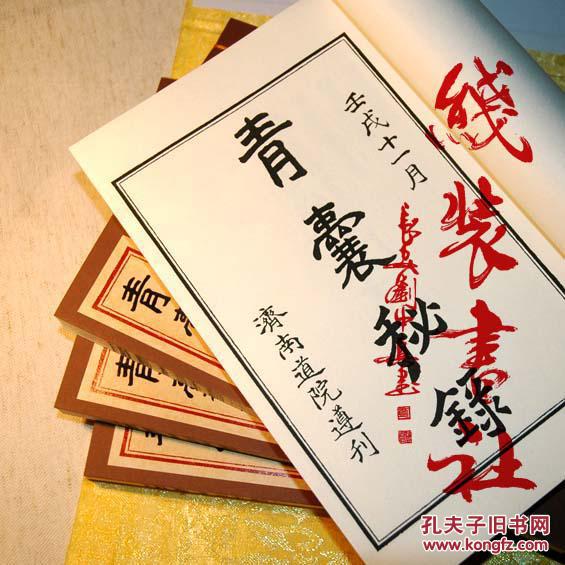 壬戌十一月
青囊秘錄
濟南道院遵刊
綫装書社
青囊
青
孔夫子旧书网
www.kongfz.com